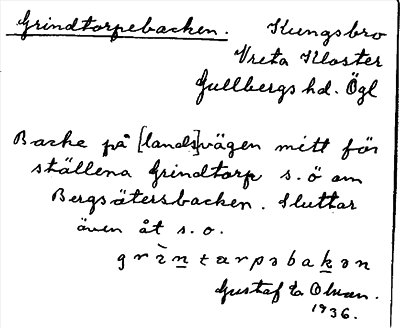 Grindtorpebacken. Kungsbro
Vreta Kloster
Gullbergs hd. Ögl
Backe på [lands]vägen mitt för
ställena Grindtorp s.ö om
Bergsätersbacken. Sluttar
även åt s.o.
grìntɐrpəbakən
Gustaf
1936.